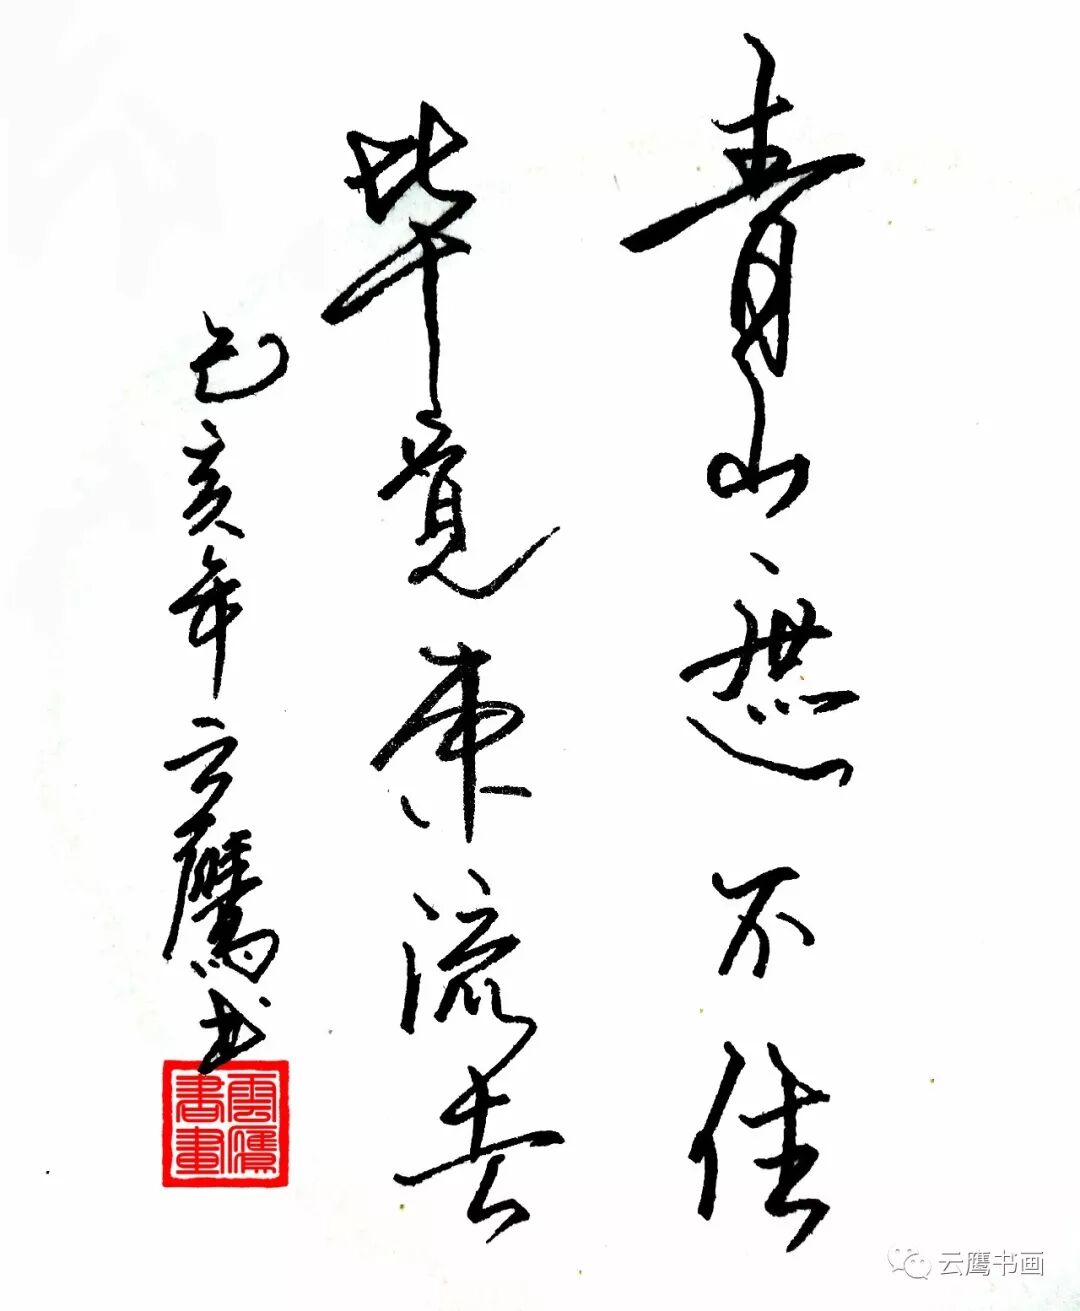 青山遮不住
毕竟东流去
己亥年云鹰书
雲鷹書畫
云鹰书画